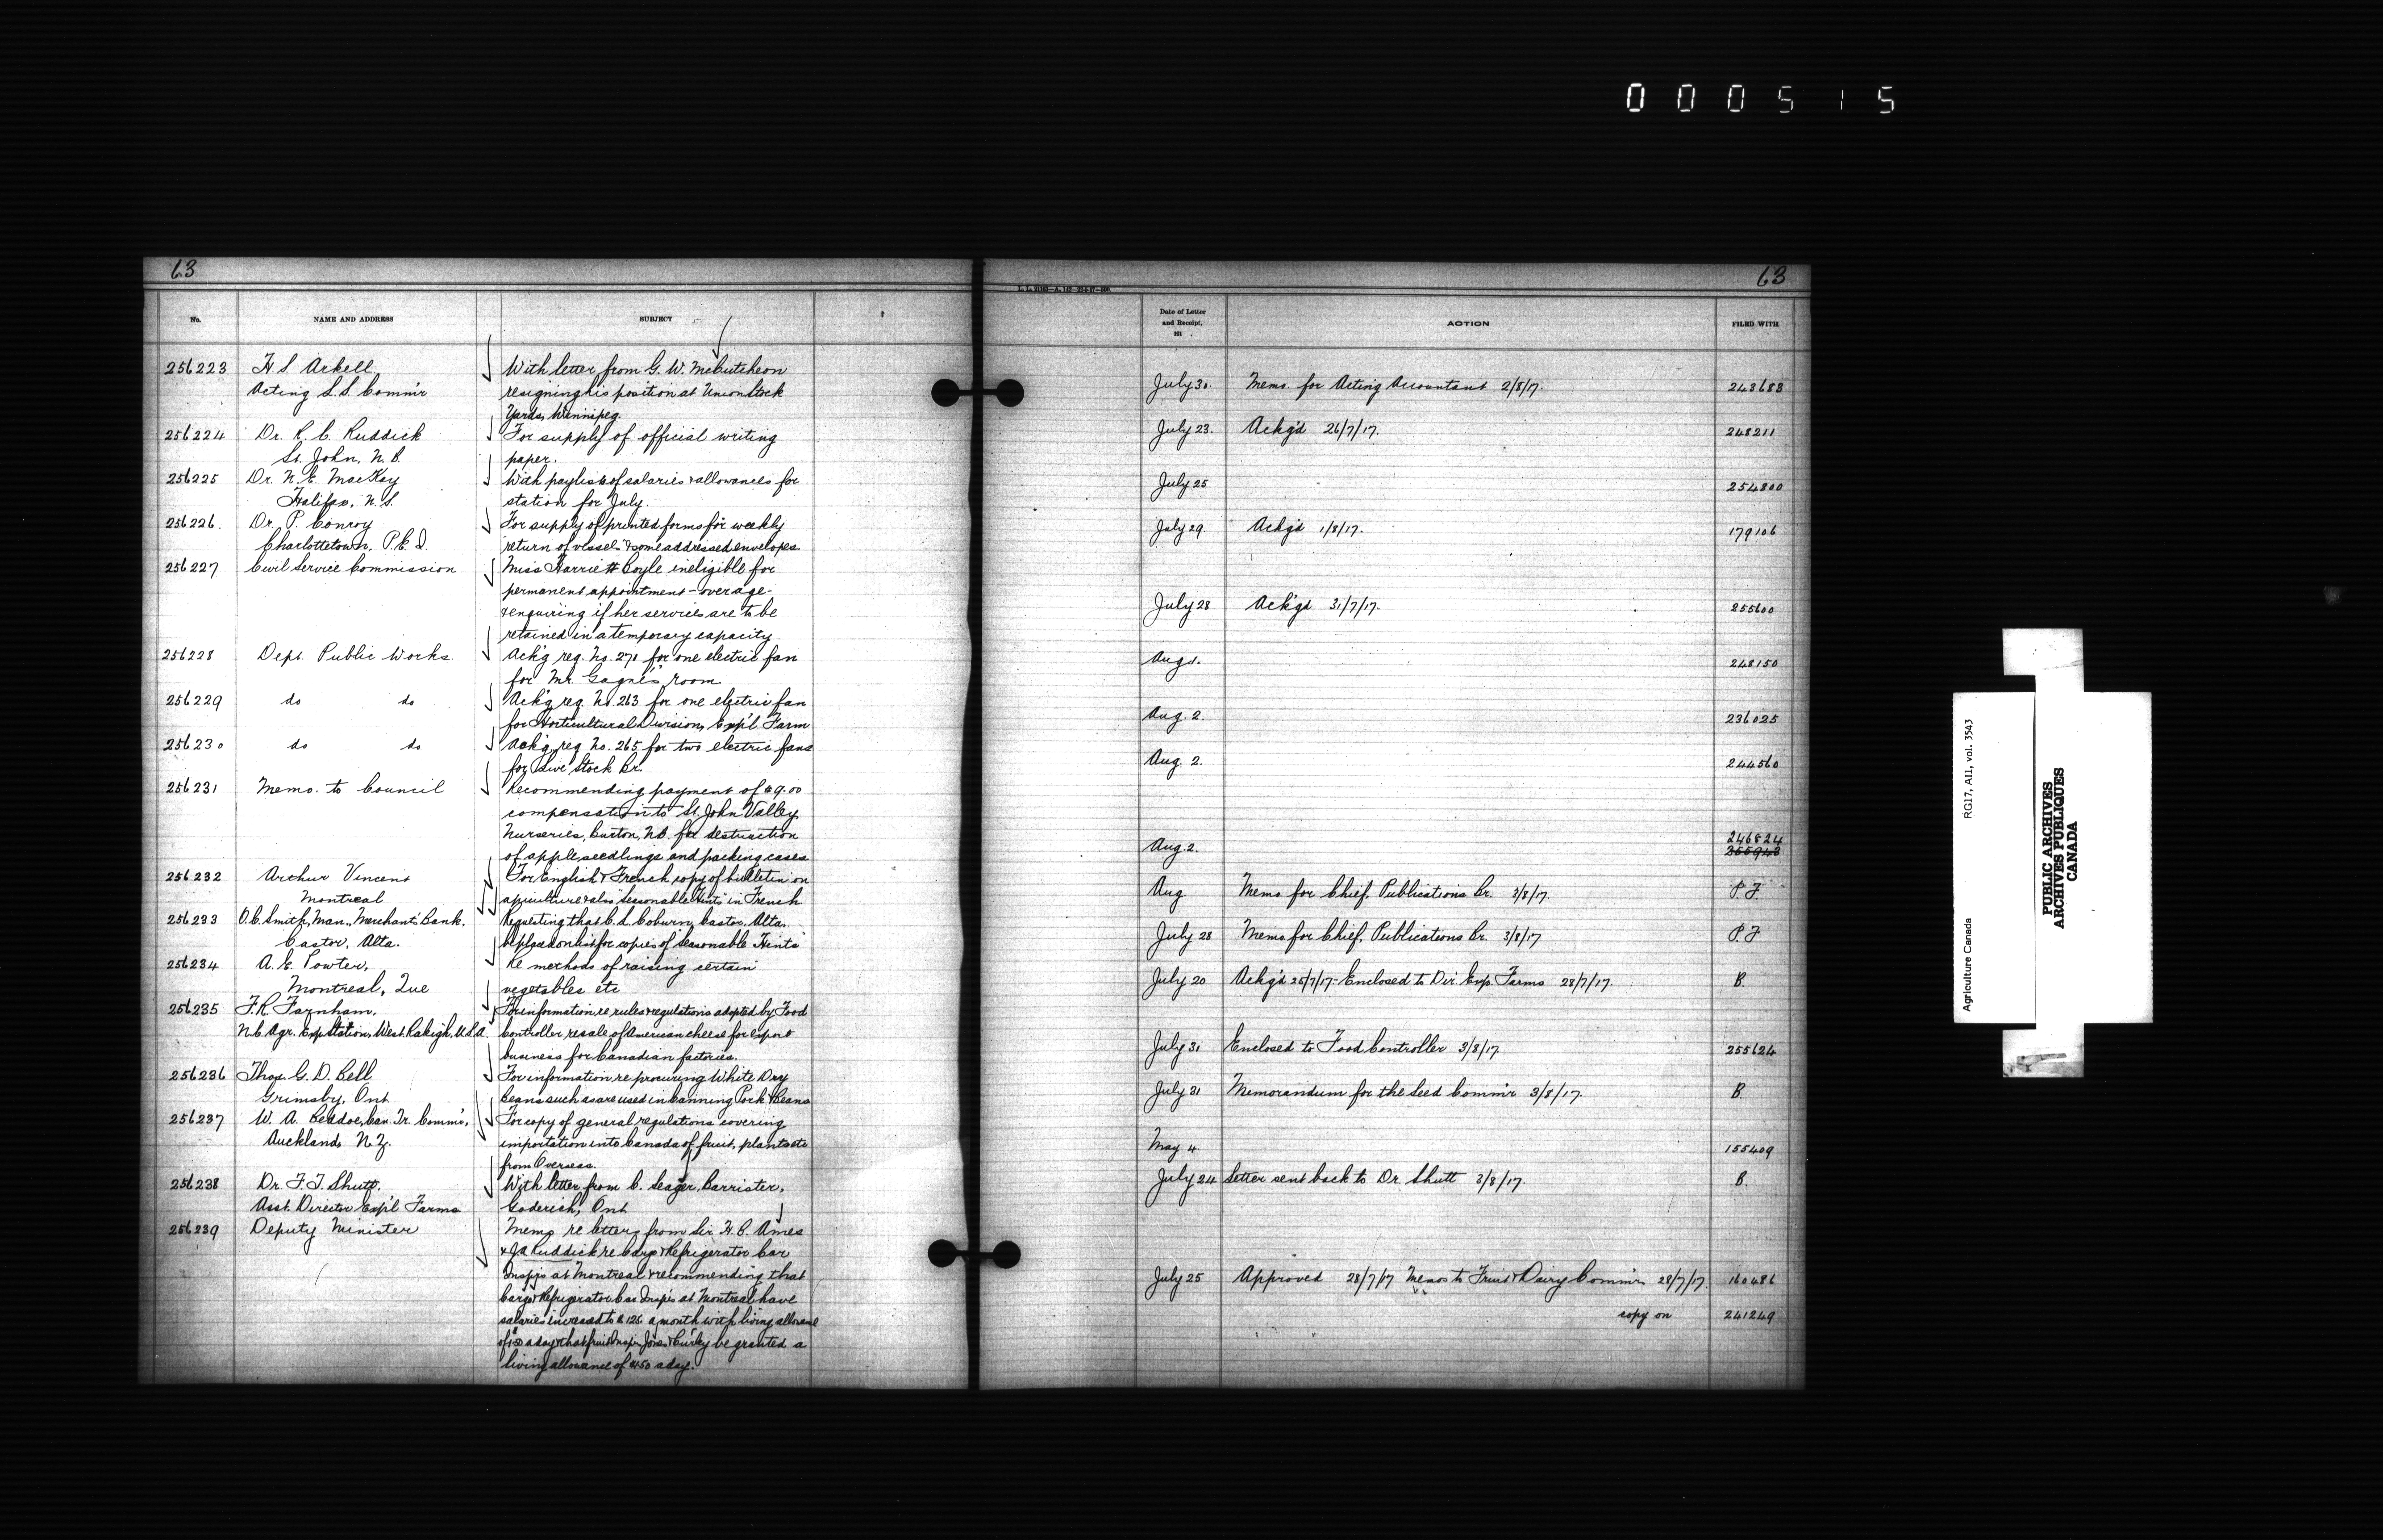 000515
63
No.
NAME AND ADDRESS
SUBJECT
256223 H. S. Arkell With letter from G. W. McCutcheon
Acting L.S. Comm'r resigning his position at Union Stock
Yards, Winnipeg.
256224 Dr. R. C. Ruddick For supply of official writing
St. John, N.B. paper.
256225 Dr. N. E. MacKay With paylists of salaries & allowances for
Halifax, N.S. station for July.
256226. Dr. P. Conroy For supply of printed forms for weekly
Charlottetown, P.E.I. return of vessels & some addressed envelopes
256227 Civil Service Commission Miss Harriett Coyle ineligible for
permanent appointment - over age -
& enquiring if her services are to be
retained in a temporary capacity
256228 Dept. Public Works. Ack'g req. No. 271 for one electric fan
for Mr. Gagné's room
256229 do do Ack'g req. No. 263 for one electric fan
for Horticultural Division, Exp'l Farm
256230 do do Ack'g req. No. 265 for two electric fans
for Live Stock Br.
256231 Memo. to Council Recommending payment of $9.00
compensation to St. John Valley
Nurseries, Burton, N.B. for destruction
of apple seedlings and packing cases
256232 Arthur Vincent For English & French copy of bulletin on
Montreal apiculture & also "Seasonable Hints" in French
256233 O.C. Smith, Man., Merchants Bank. Requesting that C. L. Coburn, Castor, Alta.
Castor, Alta. be placed on list for copies of "Seasonable Hints"
256234 A. E. Powter, Re methods of raising certain
Montreal, Que vegetables etc
256235 F. R. Farnham, For information re rules & regulations adopted by Food
N.C. Agr. Exp Station, West Raleigh, U.S.A. Controller re sale of American cheese for export
business for Canadian factories.
256236 Thos. G. D. Bell For information re procuring White Dry
Grimsby, Ont Beans such as are used in canning Pork & Beans
256237 W. A. Beddoe, Can. Tr. Comm'r, For copy of general regulations covering
Auckland, N.Z. importation into Canada of fruit, plants etc
from Overseas.
256238 Dr. F. T. Shutt, With letter from C. Seager, Barrister,
Asst. Director Exp'l Farms Goderich, Ont
256239 Deputy Minister Memo re letters from Sir H. B. Ames
& J A Ruddick re Cargo & Refrigerator Car
Insp'rs at Montreal & recommending that
Cargo & Refrigerator Car Insp'rs at Montreal have
salaries increased to $125 a month with living allowance
of $1.50 a day & that fruit Insp'rs Jones & Curley be granted a
living allowance of $1.50 a day.
63
Date of Letter
and Receipt,
191
ACTION
FILED WITH
July 30. Memo. for Acting Accountant 2/8/17. 243683
July 23. Ackg'd 26/7/17. 248211
July 25 254800
July 29. Ackg'd 1/8/17. 179106
July 28 Ack'gd 31/7/17. 255600
Aug 1. 248150
Aug. 2. 236025
Aug. 2. 244560
246824
Aug. 2. 255943
Aug Memo. for Chief, Publications Br. 3/8/17. P.F.
July 28 Memo. for Chief, Publications Br. 3/8/17 P.F
July 20 Ackg'd 25/7/17 - Enclosed to Dir. Exp. Farms 28/7/17. B.
July 31 Enclosed to Food Controller 3/8/17 255624
July 31 Memorandum for the Seed Comm'r 3/8/17. B.
May 4 155409
July 24 Letter sent back to Dr. Shutt 3/8/17. B.
July 25 Approved 28/7/17 Memos to Fruit & Dairy Comm'rs 28/7/17. 160486
copy on 241249
Agriculture Canada RG17, AII, vol. 3543
PUBLIC ARCHIVES
ARCHIVES PUBLIQUES
CANADA